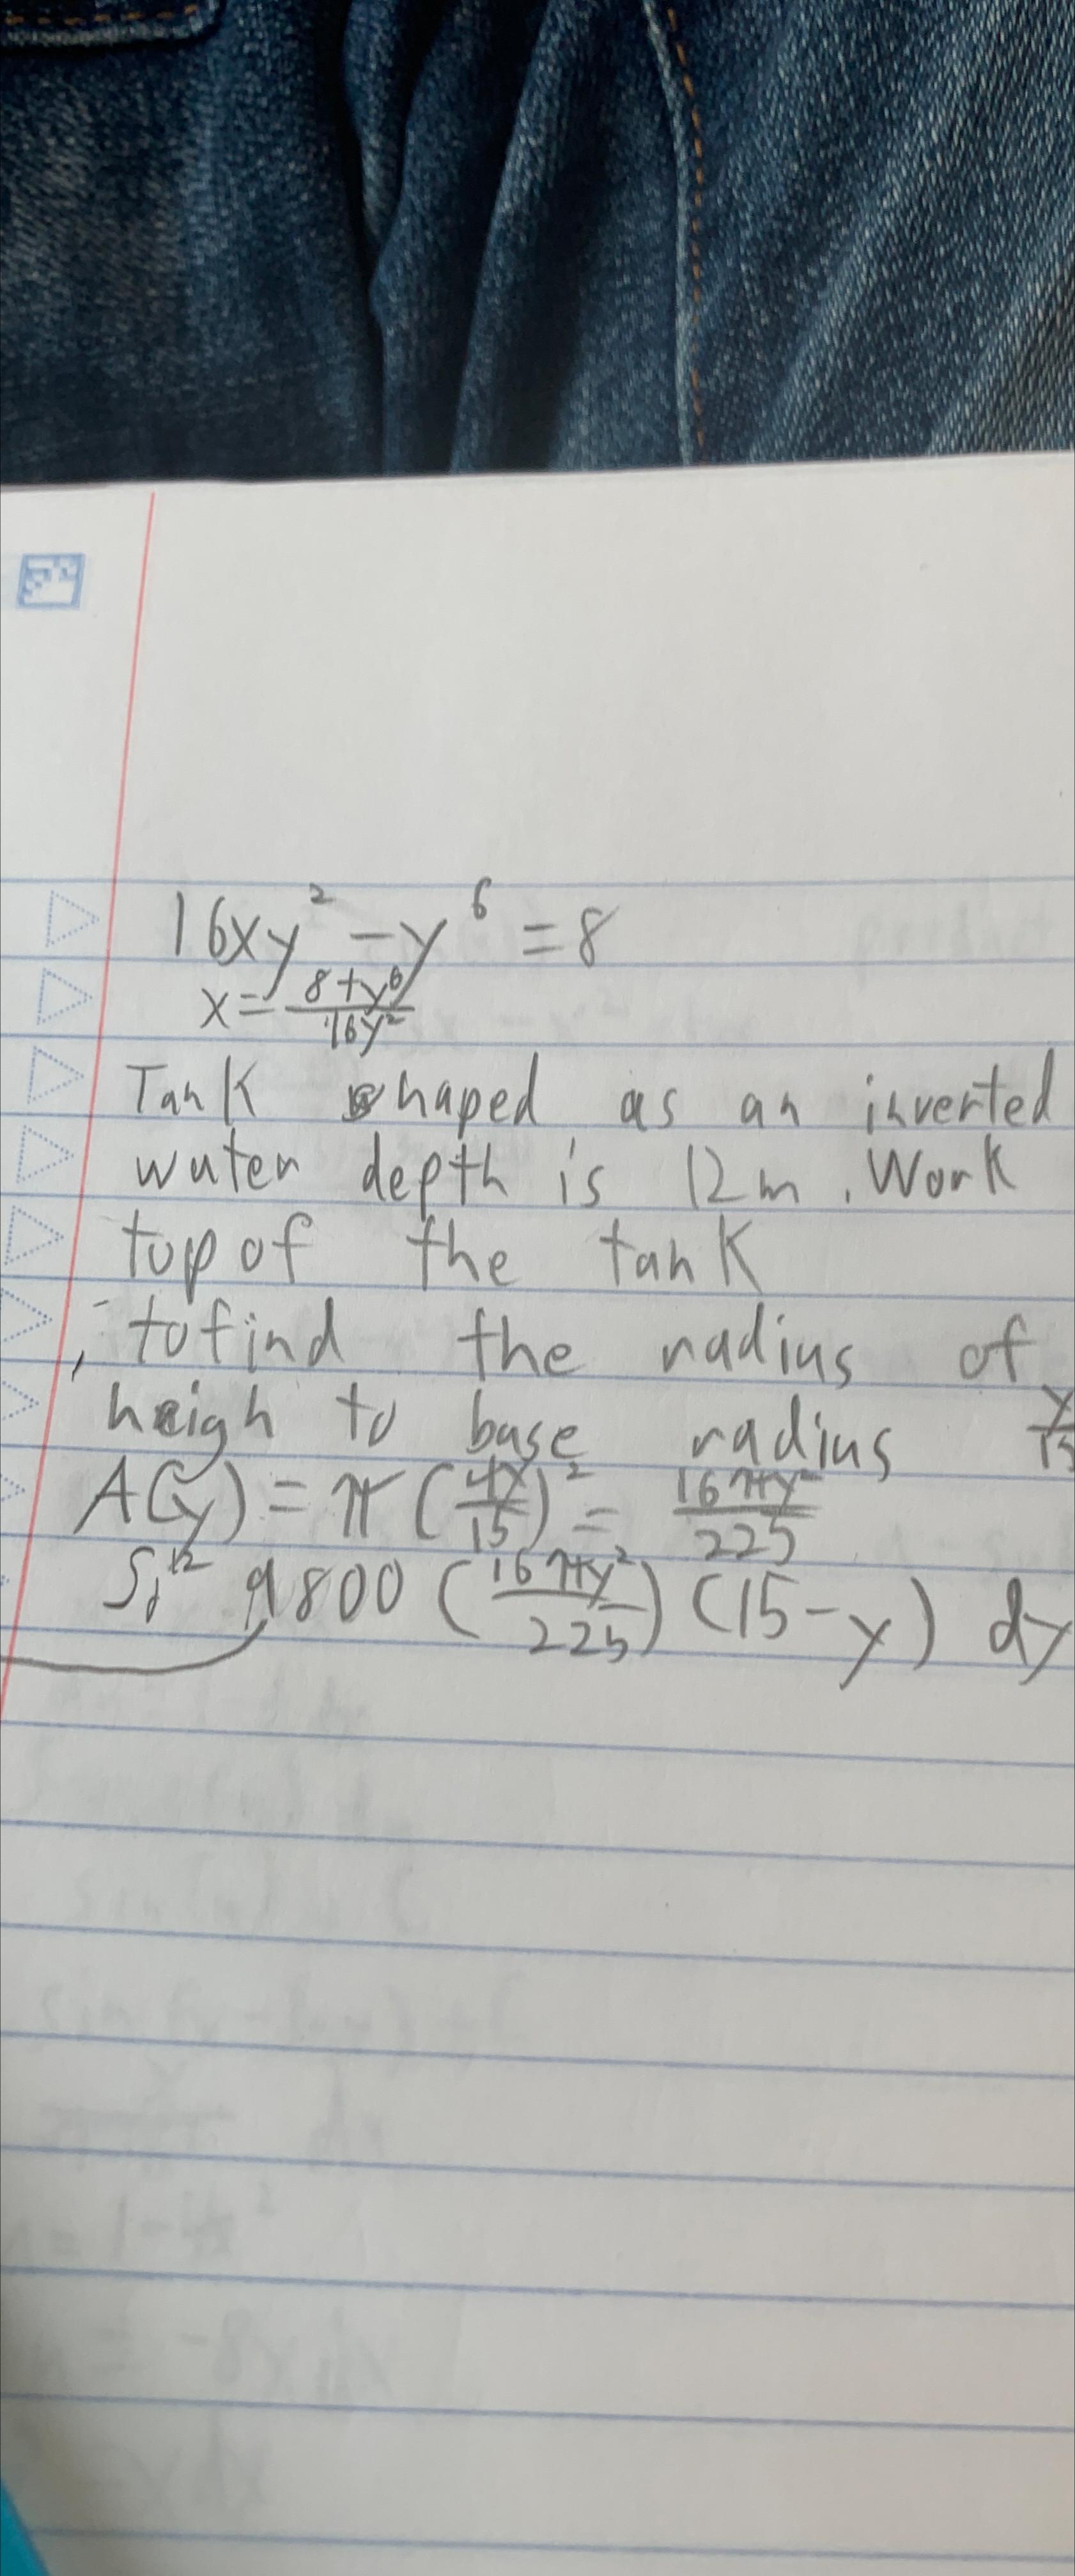 16xy² - y⁶ = 8
x = (8+y⁶)/(16y²)
Tank shaped as an inverted
water depth is 12m. Work
top of the tank
, to find the radius of
heigh to base radius y/15
A(y) = π(4y/15)² = 16πy²/225
∫₀¹² 9800 (16πy²/225)(15-y) dy